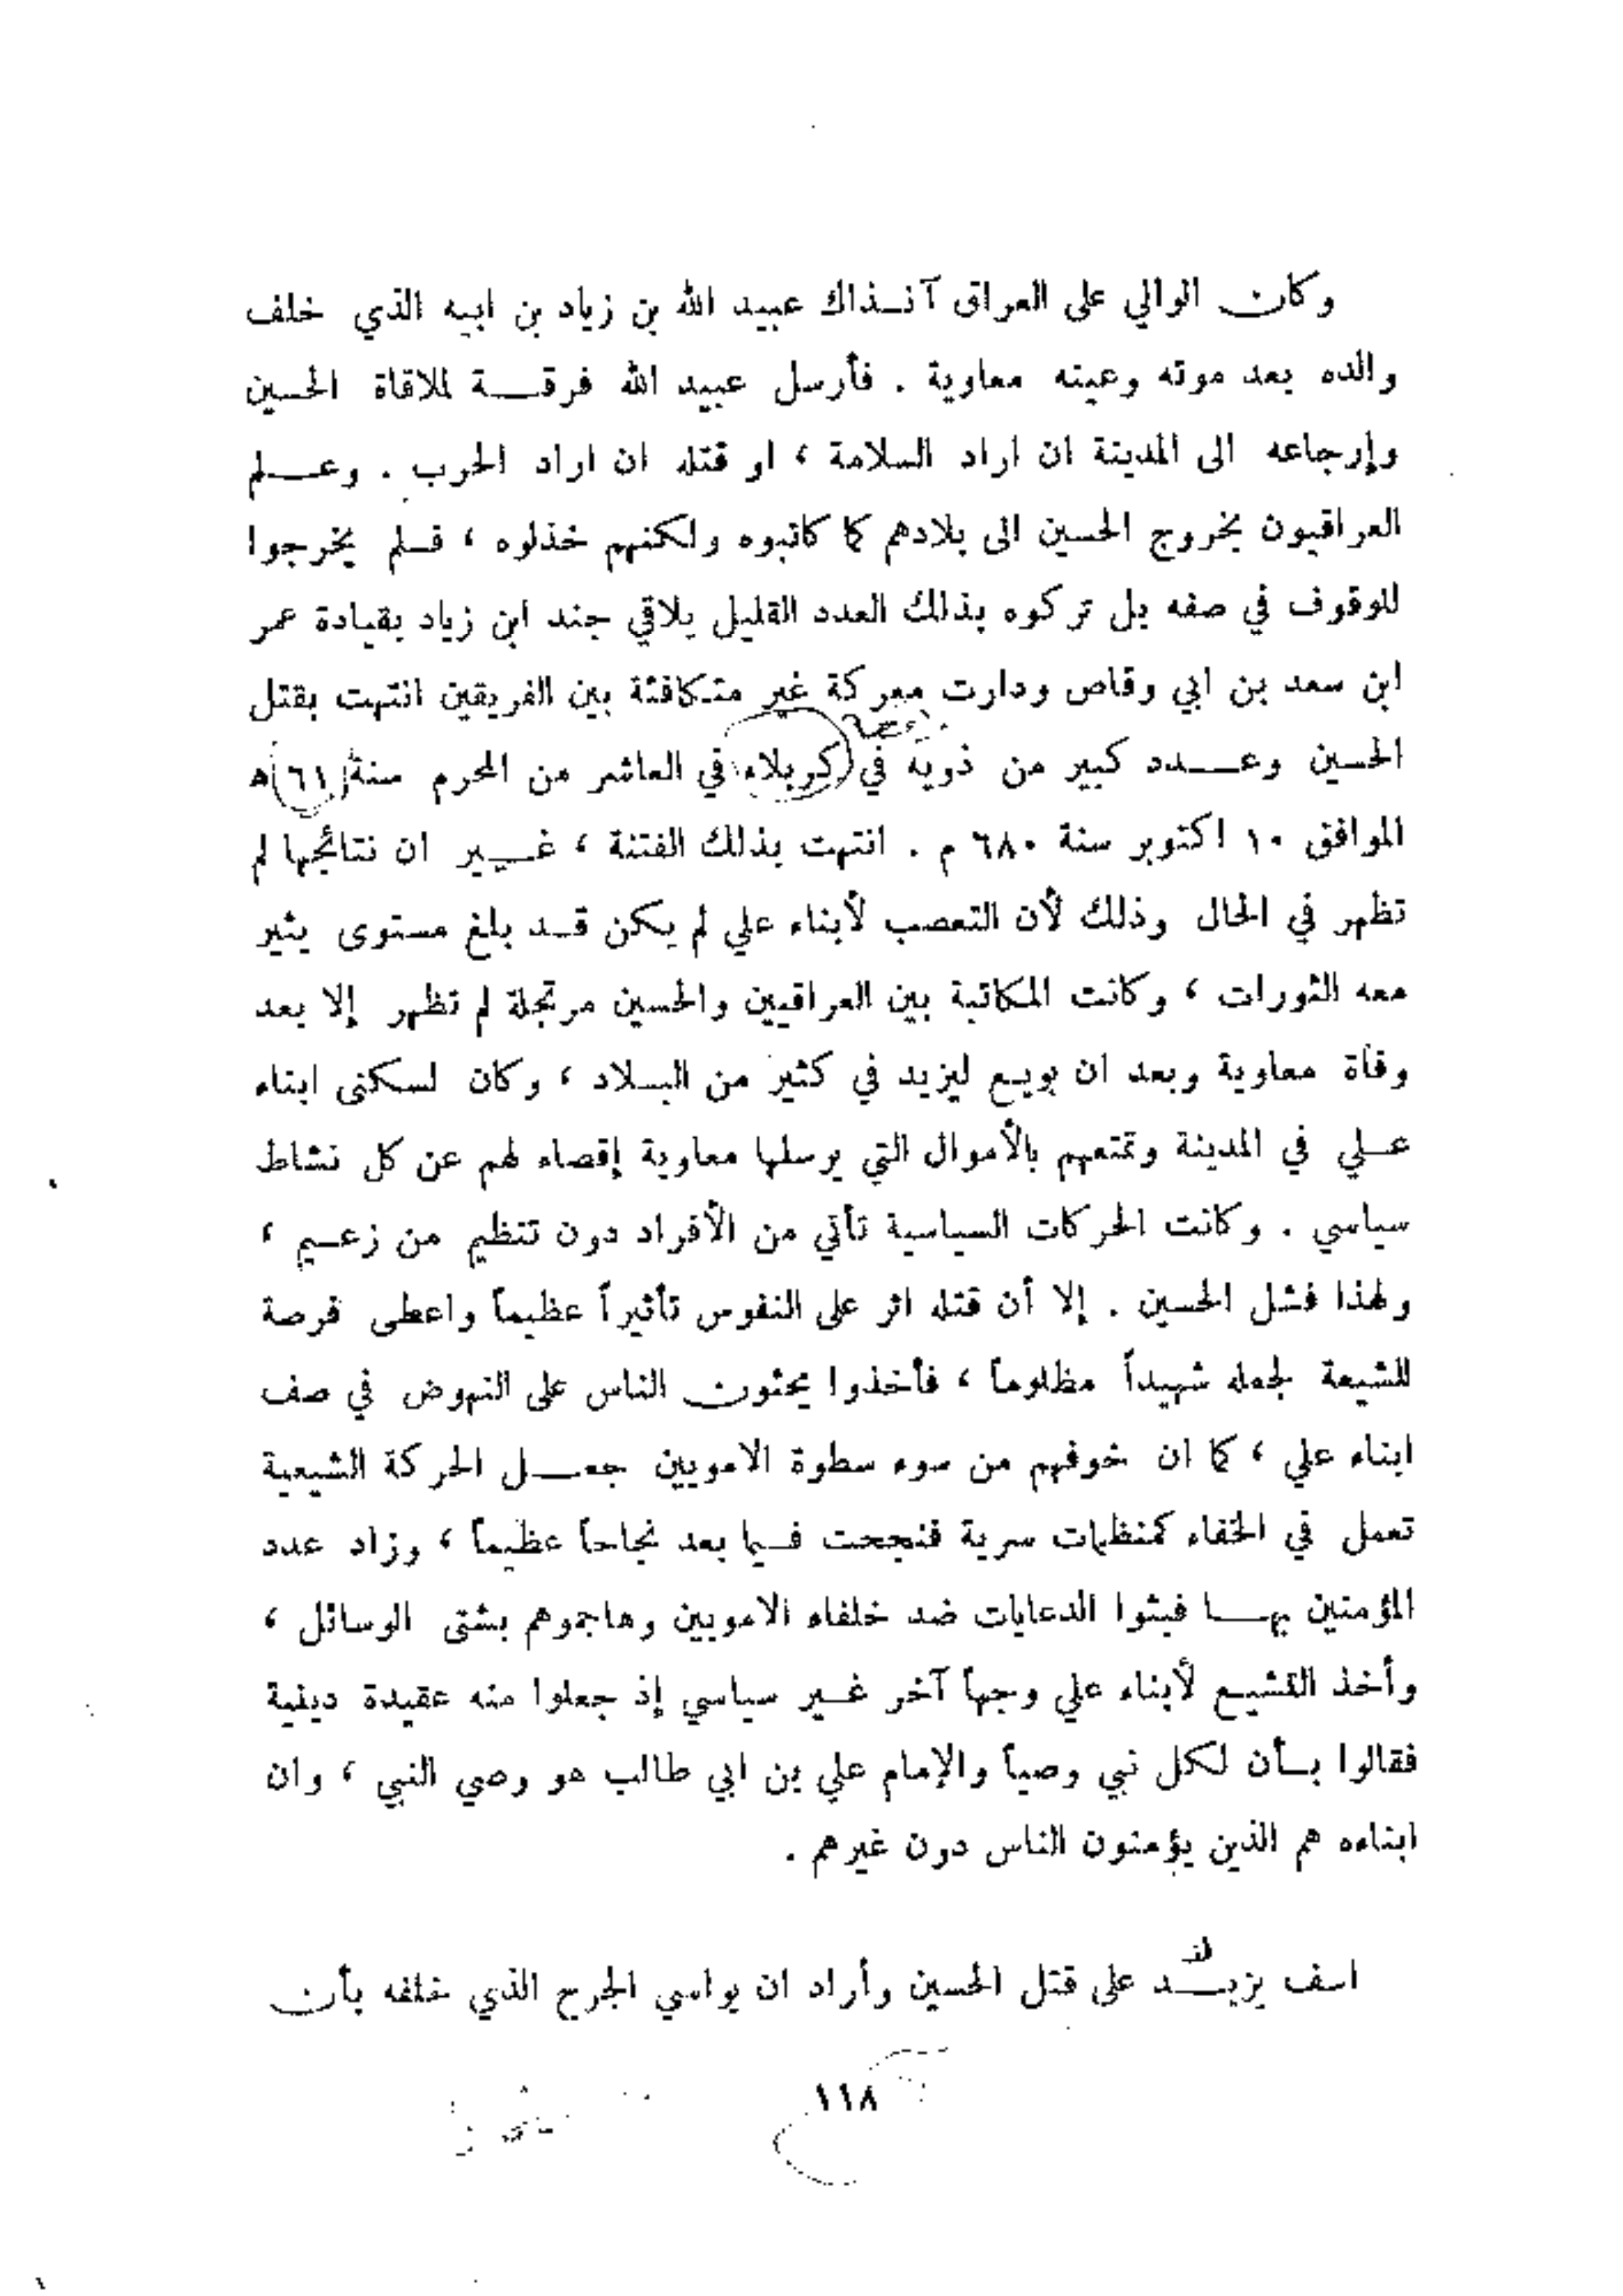 وكان الوالي على العراق آنذاك عبيد الله بن زياد بن ابيه الذي خلف
والده بعد موته وعينه معاوية . فأرسل عبيد الله فرقة لملاقاة الحسين
وإرجاعه الى المدينة ان اراد السلامة ، او قتله ان اراد الحرب . وعلم
العراقيون بخروج الحسين الى بلادهم كما كاتبوه ولكنهم خذلوه ، فلم يخرجوا
للوقوف في صفه بل تركوه بذلك العدد القليل يلاقي جند ابن زياد بقيادة عمر
ابن سعد بن ابي وقاص ودارت معركة غير متكافئة بين الفريقين انتهت بقتل
الحسين وعدد كبير من ذويه في (كربلاء) في العاشر من المحرم سنة (٦١) ه
الموافق ١٠ اكتوبر سنة ٦٨٠ م . انتهت بذلك الفتنة ، غير ان نتائجها لم
تظهر في الحال وذلك لأن التعصب لأبناء علي لم يكن قد بلغ مستوى يثير
معه الثورات ، وكانت المكاتبة بين العراقيين والحسين مرتجلة لم تظهر إلا بعد
وفاة معاوية وبعد ان بويع ليزيد في كثير من البلاد ، وكان لسكنى ابناء
علي في المدينة وتمتعهم بالأموال التي يرسلها معاوية إقصاء لهم عن كل نشاط
سياسي . وكانت الحركات السياسية تأتي من الأفراد دون تنظيم من زعيم ،
ولهذا فشل الحسين . إلا أن قتله اثر على النفوس تأثيراً عظيماً واعطى فرصة
للشيعة لجعله شهيداً مظلوماً ، فأخذوا يحثون الناس على النهوض في صف
ابناء علي ، كما ان خوفهم من سوء سطوة الامويين جعل الحركة الشيعية
تعمل في الخفاء كمنظمات سرية فنجحت فيما بعد نجاحاً عظيماً ، وزاد عدد
المؤمنين بها فبثوا الدعايات ضد خلفاء الامويين وهاجموهم بشتى الوسائل ،
وأخذ التشيع لأبناء علي وجهاً آخر غير سياسي إذ جعلوا منه عقيدة دينية
فقالوا بأن لكل نبي وصياً والإمام علي بن ابي طالب هو وصي النبي ، وان
ابناءه هم الذين يؤمنون الناس دون غيرهم .
اسف يزيد على قتل الحسين وأراد ان يواسي الجرح الذي خلفه بأن
١١٨